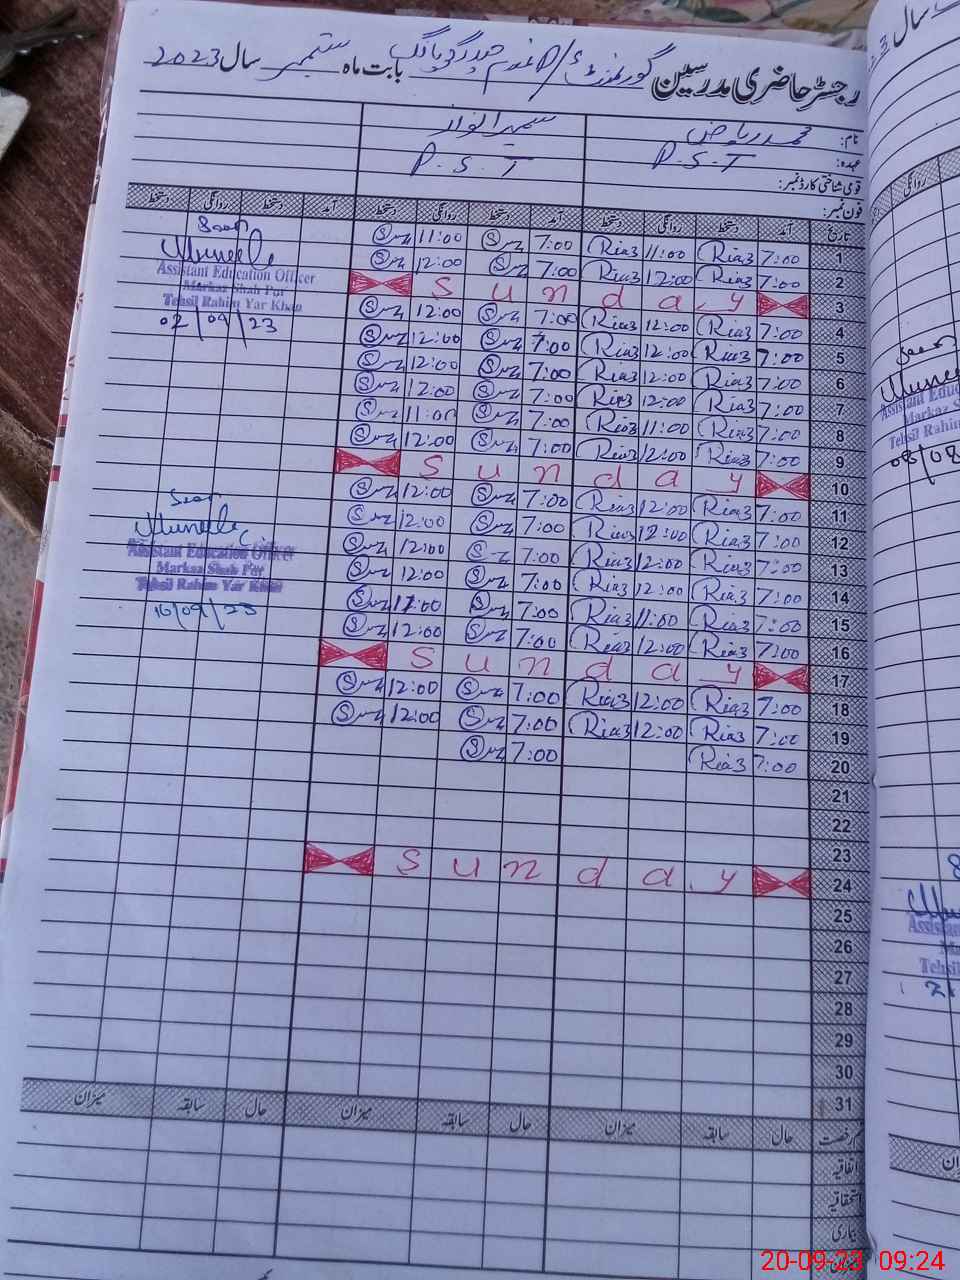 رجسٹر حاضری مدرسین گورنمنٹ بابت ماہ ستمبر سال 2023
نام: محمد ریاض سمیرا انوار
عہدہ: P.S.T P.S.T
قومی شناختی کارڈ نمبر:
فون نمبر:
تاریخ آمد دستخط روانگی دستخط آمد دستخط روانگی دستخط آمد دستخط روانگی دستخط
1 7:00 Riaz 11:00 Riaz 7:00 11:00
2 7:00 Riaz 12:00 Riaz 7:00 12:00
3 Sunday
4 7:00 Riaz 12:00 Riaz 7:00 12:00
5 7:00 Riaz 12:00 Riaz 7:00 12:00
6 7:00 Riaz 12:00 Riaz 7:00 12:00
7 7:00 Riaz 12:00 Riaz 7:00 12:00
8 7:00 Riaz 11:00 Riaz 7:00 11:00
9 7:00 Riaz 12:00 Riaz 7:00 12:00
10 Sunday
11 7:00 Riaz 12:00 Riaz 7:00 12:00
12 7:00 Riaz 12:00 Riaz 7:00 12:00
13 7:00 Riaz 12:00 Riaz 7:00 12:00
14 7:00 Riaz 12:00 Riaz 7:00 12:00
15 7:00 Riaz 11:00 Riaz 7:00
16 7:00 Riaz 12:00 Riaz 7:00 12:00
17 Sunday
18 7:00 Riaz 12:00 Riaz 7:00 12:00
19 7:00 Riaz 12:00 Riaz 7:00 12:00
20 7:00 Riaz 7:00
21
22
23
24 Sunday
25
26
27
28
29
30
31
Seen
Muneeb
Assistant Education Officer
Markaz Shah Pur
Tehsil Rahim Yar Khan
02/09/23
Seen
Muneeb
Assistant Education Officer
Markaz Shah Pur
Tehsil Rahim Yar Khan
16/09/23
رخصت حال سابقہ میزان حال سابقہ میزان حال سابقہ میزان
اتفاقیہ
استحقاقیہ
بیماری
20-09-23 09:24